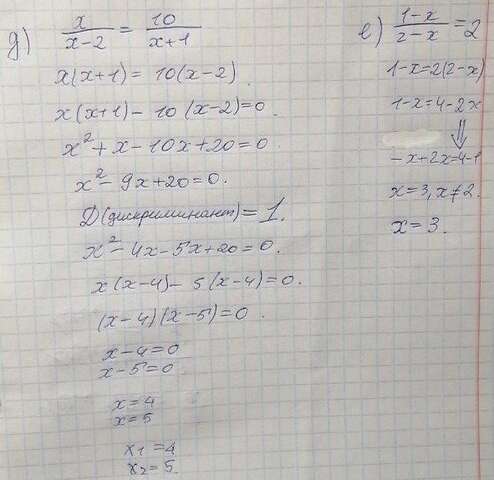 д) x/(x-2) = 10/(x+1)
x(x+1) = 10(x-2)
x(x+1) - 10(x-2)=0.
x²+x-10x+20=0.
x²-9x+20=0.
Д(дискриминант)=1.
x²-4x-5x+20=0.
x(x-4)-5(x-4)=0.
(x-4)(x-5)=0.
x-4=0
x-5=0
x=4
x=5
x₁=4
x₂=5.
е) (1-x)/(2-x)=2
1-x=2(2-x)
1-x=4-2x
⇓
-x+2x=4-1
x=3, x≠2.
x=3.